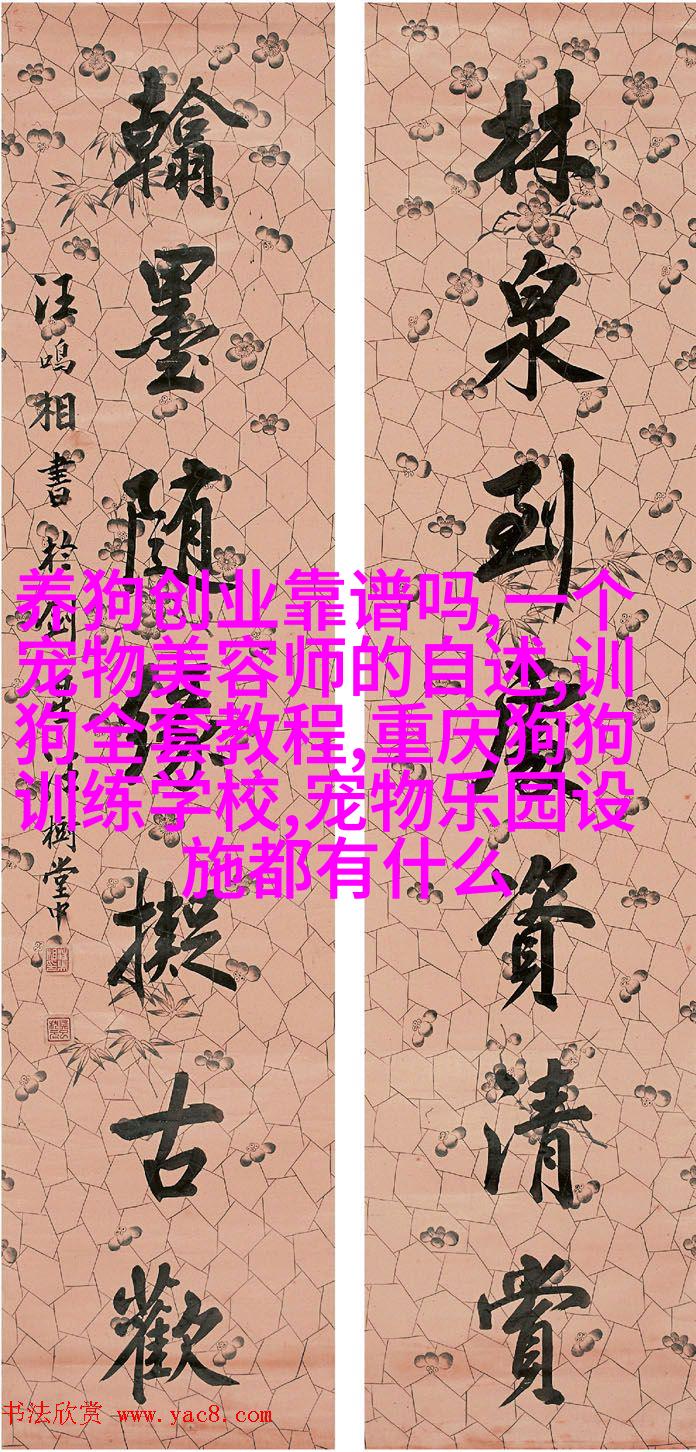 林泉到處資清賞
翰墨隨緣擬古歡
汪鳴相書於劍樹堂中
养狗创业靠谱吗,一个
宠物美容师的自述,训
狗全套教程,重庆狗狗
训练学校,宠物乐园设
施都有什么
书法欣赏 www.yac8.com